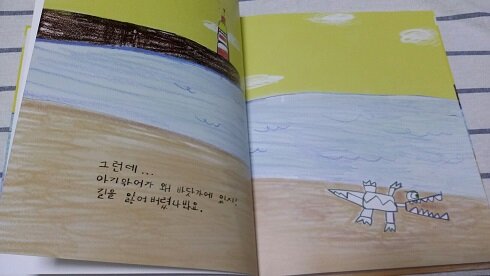 그런데...
아기악어가 왜 바닷가에 있지?
길을 잃어버렸나봐요.